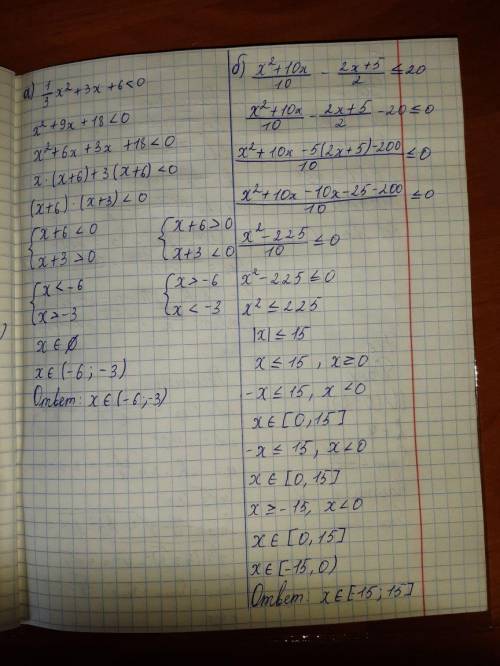 а) 1/3 x² + 3x + 6 < 0
x² + 9x + 18 < 0
x² + 6x + 3x + 18 < 0
x · (x+6) + 3(x+6) < 0
(x+6) · (x+3) < 0
{ x+6 < 0   { x+6 > 0
{ x+3 > 0   { x+3 < 0
{ x < -6   { x > -6
{ x > -3   { x < -3
x ∈ ∅
x ∈ (-6; -3)
Ответ: x ∈ (-6; -3)
б) (x²+10x)/10 - (2x+5)/2 ≤ 20
(x²+10x)/10 - (2x+5)/2 - 20 ≤ 0
(x²+10x-5(2x+5)-200)/10 ≤ 0
(x²+10x-10x-25-200)/10 ≤ 0
(x²-225)/10 ≤ 0
x² - 225 ≤ 0
x² ≤ 225
|x| ≤ 15
x ≤ 15, x ≥ 0
-x ≤ 15, x < 0
x ∈ [0, 15]
-x ≤ 15, x < 0
x ∈ [0, 15]
x ≥ -15, x < 0
x ∈ [0, 15]
x ∈ [-15, 0)
Ответ: x ∈ [-15; 15]